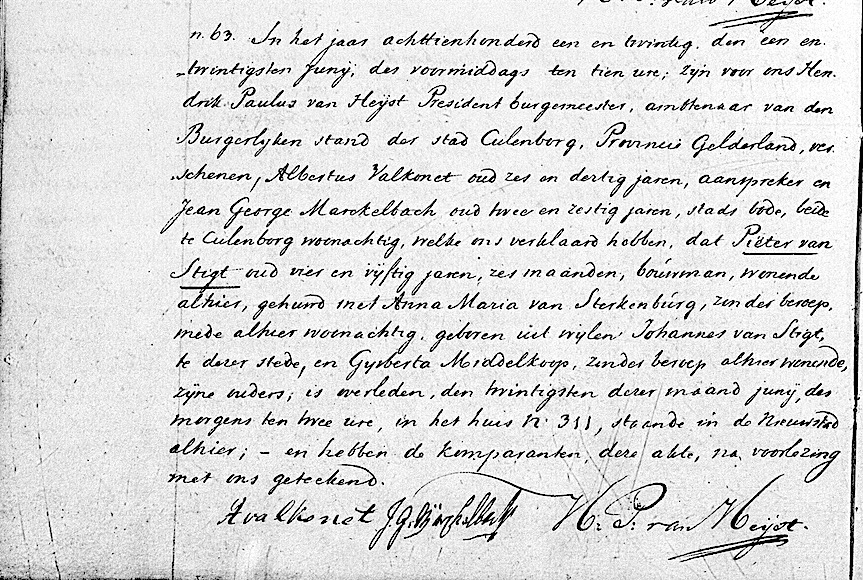 n. 63. In het jaar achttienhonderd een en twintig, den een en
twintigsten Junij, des voormiddags ten tien ure; zijn voor ons Hen-
drik Paulus van Heyst President burgemeester, ambtenaar van den
Burgerlyken stand der stad Culenborg, Provincie Gelderland, ver
schenen, Albertus Valkonet oud zes en dertig jaren, aanspreker en
Jean George Marckelbach oud twee en zestig jaren, stads bode, beide
te Culenborg woonachtig, welke ons verklaard hebben, dat Pieter van
Stigt oud vier en vijftig jaren, zes maanden, bouwman, wonende
alhier, gehuwd met Anna Maria van Sterkenburg, zonder beroep,
mede alhier woonachtig, geboren uit wylen Johannes van Stigt,
te dezer stede, en Gysberta Middelkoop, zonder beroep alhier wonende,
zyne ouders; is overleden, den twintigsten dezer maand junij, des
morgens ten twee ure, in het huis N 311, staande in de Nieuwstad
alhier; – en hebben de komparanten deze akte, na voorlezing
met ons geteekend.
A valkonet J. G. Marckelbach H: P: van Heyst.